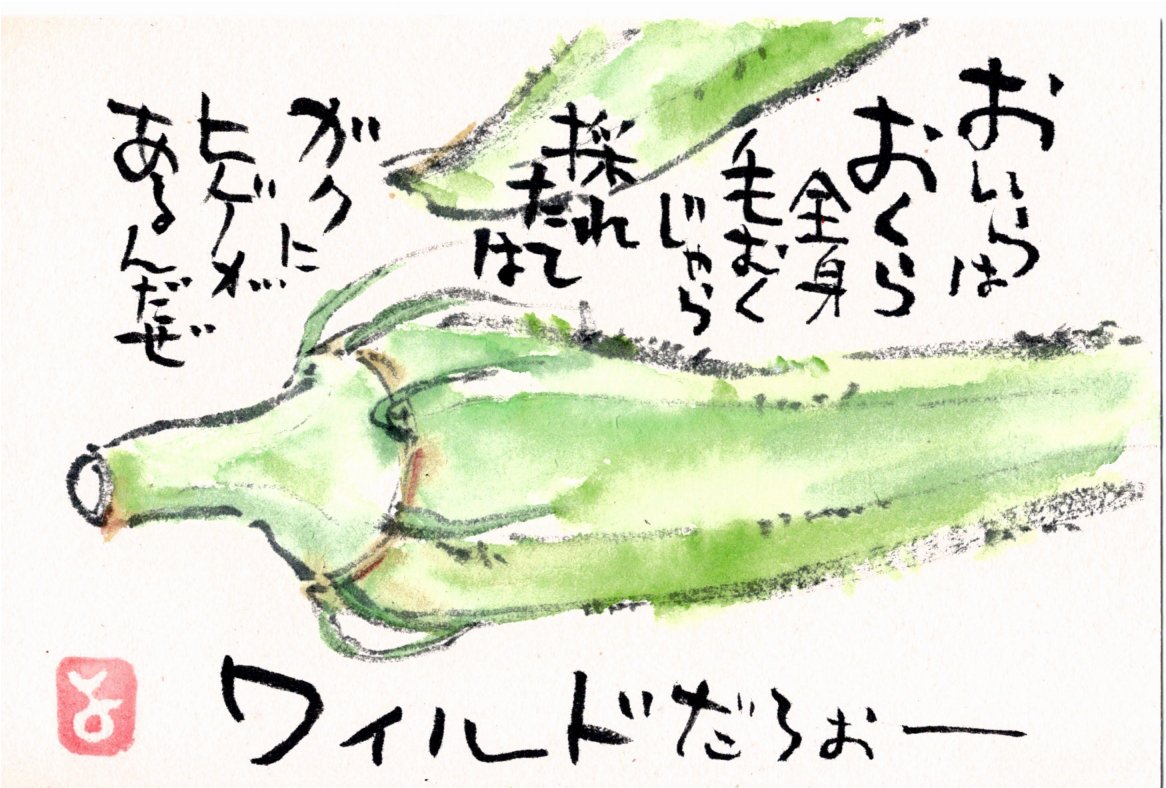 おいらは
おくら
全身
毛むく
じゃら
採れ
たて
は
ガクに
ヒゲが
あるんだぜ
ワイルドだろぉー